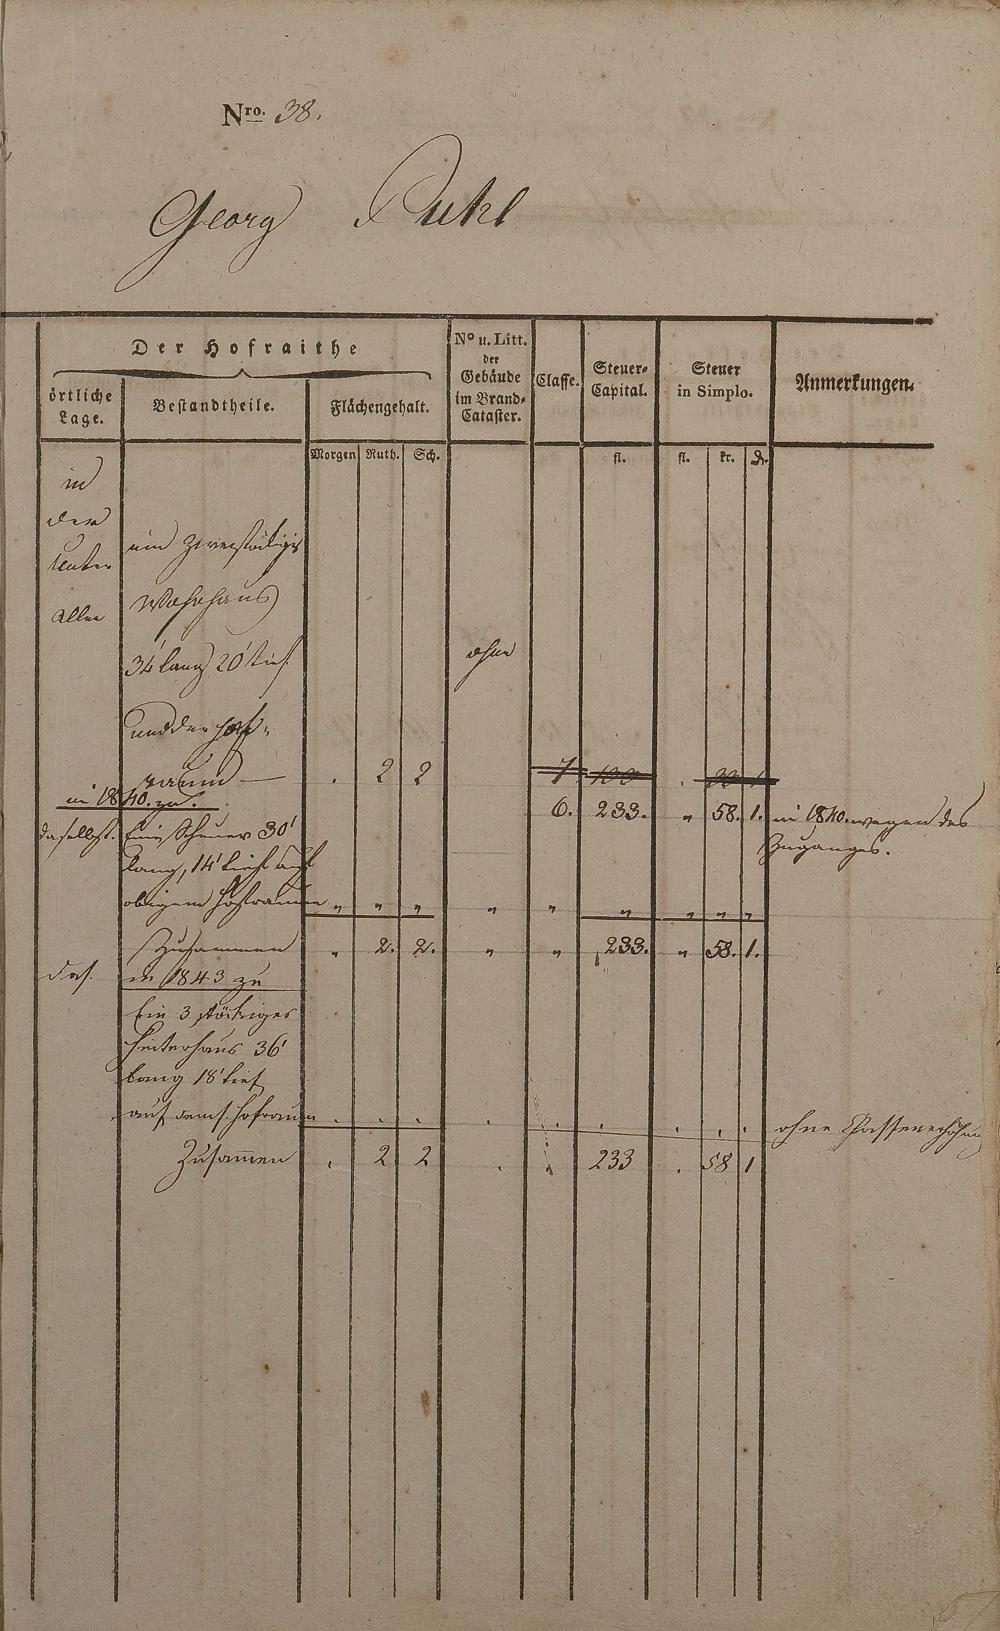 Nro. 38.
Georg Ruhl
Der Hofraithe
örtliche Lage.
Bestandtheile.
Flächengehalt.
No u. Litt. der Gebäude im Brand-Cataster.
Classe.
Steuer-Capital.
Steuer in Simplo.
Anmerkungen.
Morgen Ruth. Sch. fl. fl. kr. d.
in
der
Unter
allee
ein zweistöckiges
Wohnhaus
34' lang 20' tief
ohne
und der Hof-
raum — . 2 2 7 100 .
in 1840. zu.
6. 233. " 58. 1. in 1840. wegen des
Zuganges.
daselbst. Eine Scheuer 30'
lang, 14' tief auf
obigem Hofraum " " " " " " " " "
Zusammen " 2. 2. " " 233. " 58. 1.
das. in 1843 zu
Ein 3 stöckiges
Hinterhaus 36'
lang 18' tief
auf dems. Hofraum . . . . . . . . . ohne Classenerhöhung
Zusammen . 2 2 . . 233 . 58 1